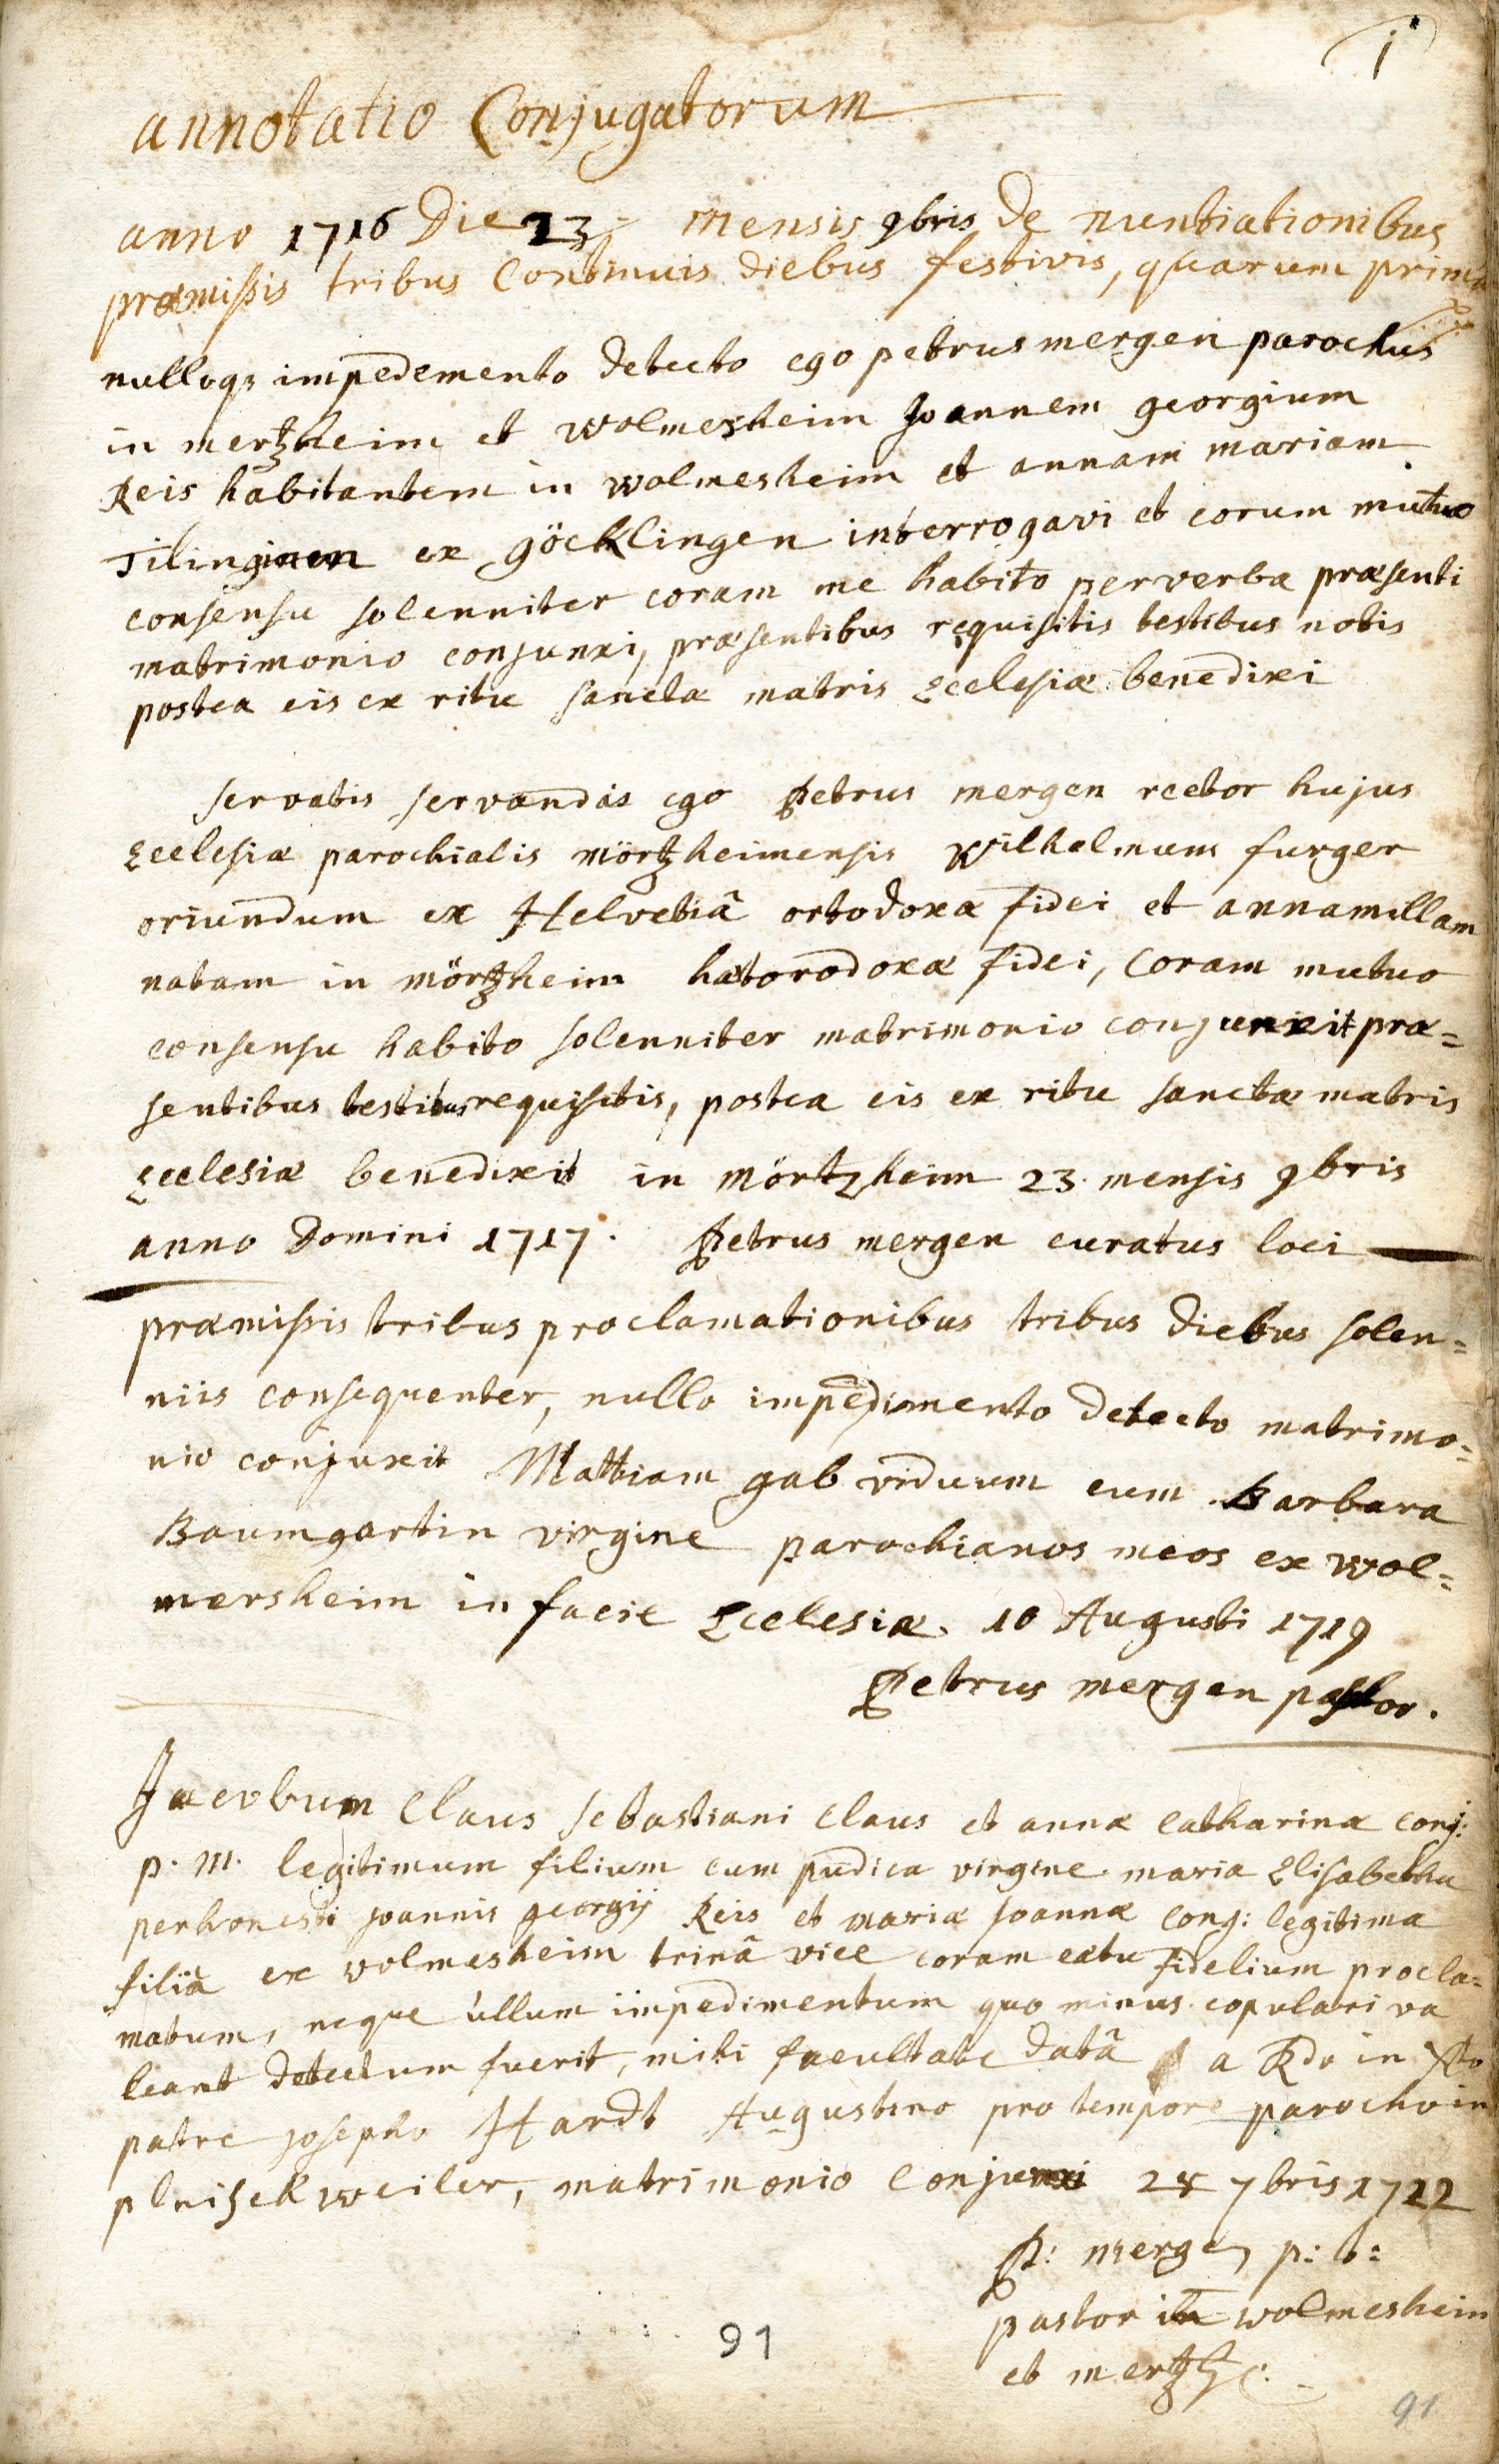 1
annotatio Conjugatorum
anno 1716 Die 23 mensis 9bris De nuntiationibus
præmißis tribus Continuis diebus festivis, quarum prima
nulloq3 impedemento detecto ego petrus mergen parochus
in mertzheim et wolmesheim Joannem georgium
Reis habitantem in wolmesheim et annam mariam
ex göcklingen interrogavi et eorum mutuo
consensu solenniter coram me habito per verba præsenti
matrimonio conjunxi, præsentibus requisitis testibus notis
postea eis ex ritu sanctæ matris Ecclesiæ benedixi
servatis servandis ego Petrus mergen rector hujus
Ecclesiæ parochialis mörtzheimensis Wilhelmum furger
oriundum ex Helvetiâ ortodoxæ fidei et annamillam
natam in mörtzheim hætorodoxæ fidei, Coram mutuo
consensu habito solenniter matrimonio conjunxit præ=
sentibus testibus requisitis, postea eis ex ritu sanctæ matris
Ecclesiæ benedixit in mörtzheim 23. mensis 9bris
anno Domini 1717. Petrus mergen curatus loci
præmißis tribus proclamationibus tribus diebus solen=
niis consequenter, nullo impedimento detecto matrimo=
nio conjuxit Mattiam gab viduum cum Barbara
Baumgartin virgine parochianos meos ex wol=
mersheim in facie Ecclesiæ. 10 Augusti 1719
Petrus mergen pastor.
Jacobum Claus Sebastiani Claus et annæ Catharinæ conj:
p. m. legitimum filium cum pudica virgine maria Elisabetha
perhonesti joannis georgij Reis et mariæ joannæ conj: legitima
filiâ ex wolmesheim trinâ vice coram cætu fidelium procla=
matum, neque ullum impedimentum quo minus copulari va
leant detectum fuerit, mihi facultate datâ a Rdo in Xto
patre josepho Hardt Augustino pro tempore parocho in
pleisckweiler, matrimonio Conjunxi 28 7bris 1722
P: mergen p: t:
pastor in wolmesheim
et mertzh:
91
91